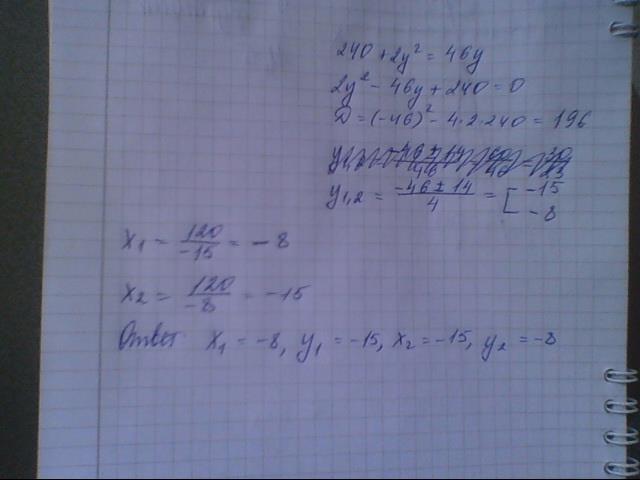 240 + 2y² = 46y
2y² - 46y + 240 = 0
D = (-46)² - 4·2·240 = 196
y1,2 = (-46 ± 14)/4 = [ -15
-8
x1 = 120/-15 = -8
x2 = 120/-8 = -15
Ответ x1 = -8, y1 = -15, x2 = -15, y2 = -8